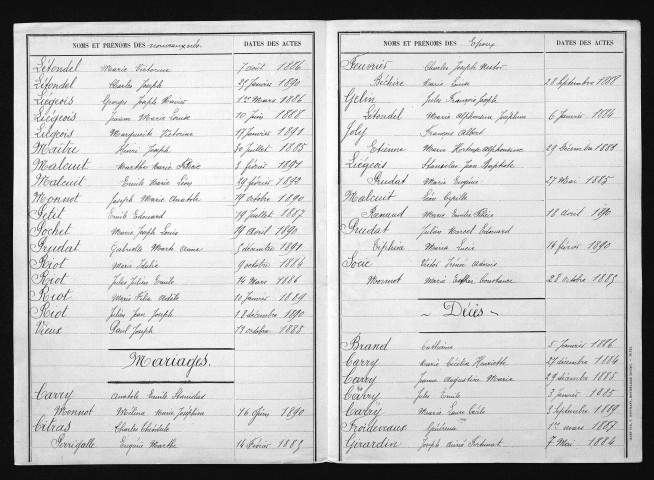 NOMS ET PRÉNOMS DES nouveaux nés. DATES DES ACTES
Létondel Marie Victorine 7 août 1886
Létondel Charles Joseph 27 Janvier 1890
Liégeois Georges Joseph 1er Mars 1886
Liégeois Jeanne Marie Louise 10 juin 1888
Liégeois Marguerite Victorine 17 Janvier 1891
Maître Henri Joseph 30 Juillet 1885
Malcuit Marthe Marie Félicie 8 février 1891
Malcuit Emile Marie Léon 29 février 1892
Monnot Joseph Marie Anatole 19 octobre 1890
Petit Emile Edouard 19 Juillet 1887
Pochet Marie Joseph Louis 19 Avril 1890
Prudat Gabrielle Marie Anna 5 décembre 1891
Riot Marie Idalie 9 octobre 1884
Riot Jules Julien Emile 14 Mars 1886
Riot Marie Félix Adèle 10 Janvier 1889
Riot Julien Jean Joseph 18 décembre 1890
Vieux Paul Joseph 19 octobre 1883
Mariages.
Carry Anatole Emile Stanislas
Monnot Marie Joséphine 16 1890
Citras Charles Théodule
Perrigalle Eugénie Marthe 14 Février 1883
NOMS ET PRÉNOMS DES Epoux DATES DES ACTES
Feuvrier Charles Joseph Nestor
Béchire Marie Louise 28 Septembre 1888
Gelin Jules François Joseph
Létondel Marie Alphonsine Joséphine 6 Janvier 1884
Joly François Albert
Etienne Marie Hortense Alphonsine 29 Décembre 1888
Liégeois Stanislas Jean Baptiste
Prudat Marie Eugénie 27 Mai 1885
Malcuit Léon Cyrille
Renaud Marie Emilie Félicie 18 avril 1890
Prudat Julien Marcel Edouard
Marie Lucie 14 février 1890
Socié Victor Irénée
Monnot Marie Esther Constance 28 octobre 1883
~ Décès ~
Brand Catherine 5 Janvier 1886
Carry Marie Cécilia Henriette 27 décembre 1884
Carry Jeanne Augustine Maria 29 décembre 1885
Carry Jules Emile 3 Janvier 1885
Carry Marie Laure Cécile 3 Septembre 1889
Froidevaux Généreuse 1er mars 1887
Girardin Joseph Aimé Fortunat 7 Mai 1884